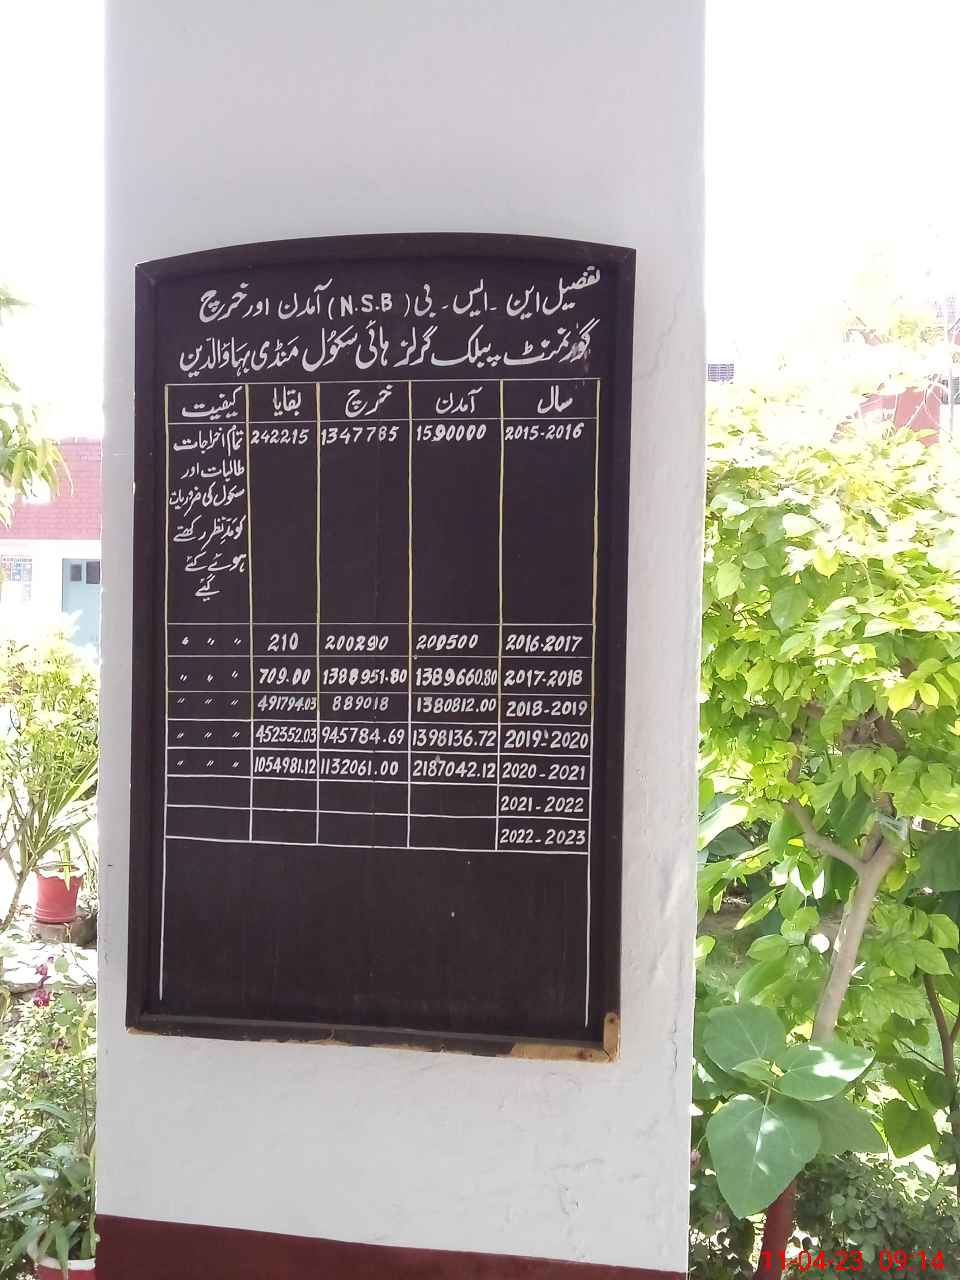 تفصیل این ۔ ایس ۔ بی ( N.S.B ) آمدن اور خرچ
گورنمنٹ پبلک گرلز ہائی سکول منڈی بہاؤالدین
سال آمدن خرچ بقایا کیفیت
2015-2016 1590000 1347785 242215 تمام اخراجات
طالبات اور
سکول کی ضروریات
کو مدِنظر رکھتے
ہوئے کئے
گئے
2016-2017 200500 200290 210 〃 〃 〃
2017-2018 1389660.80 1388951.80 709.00 〃 〃 〃
2018-2019 1380812.00 889018 491794.03 〃 〃 〃
2019-2020 1398136.72 945784.69 452352.03 〃 〃 〃
2020-2021 2187042.12 1132061.00 1054981.12 〃 〃 〃
2021-2022
2022-2023
11-04-23 09:14